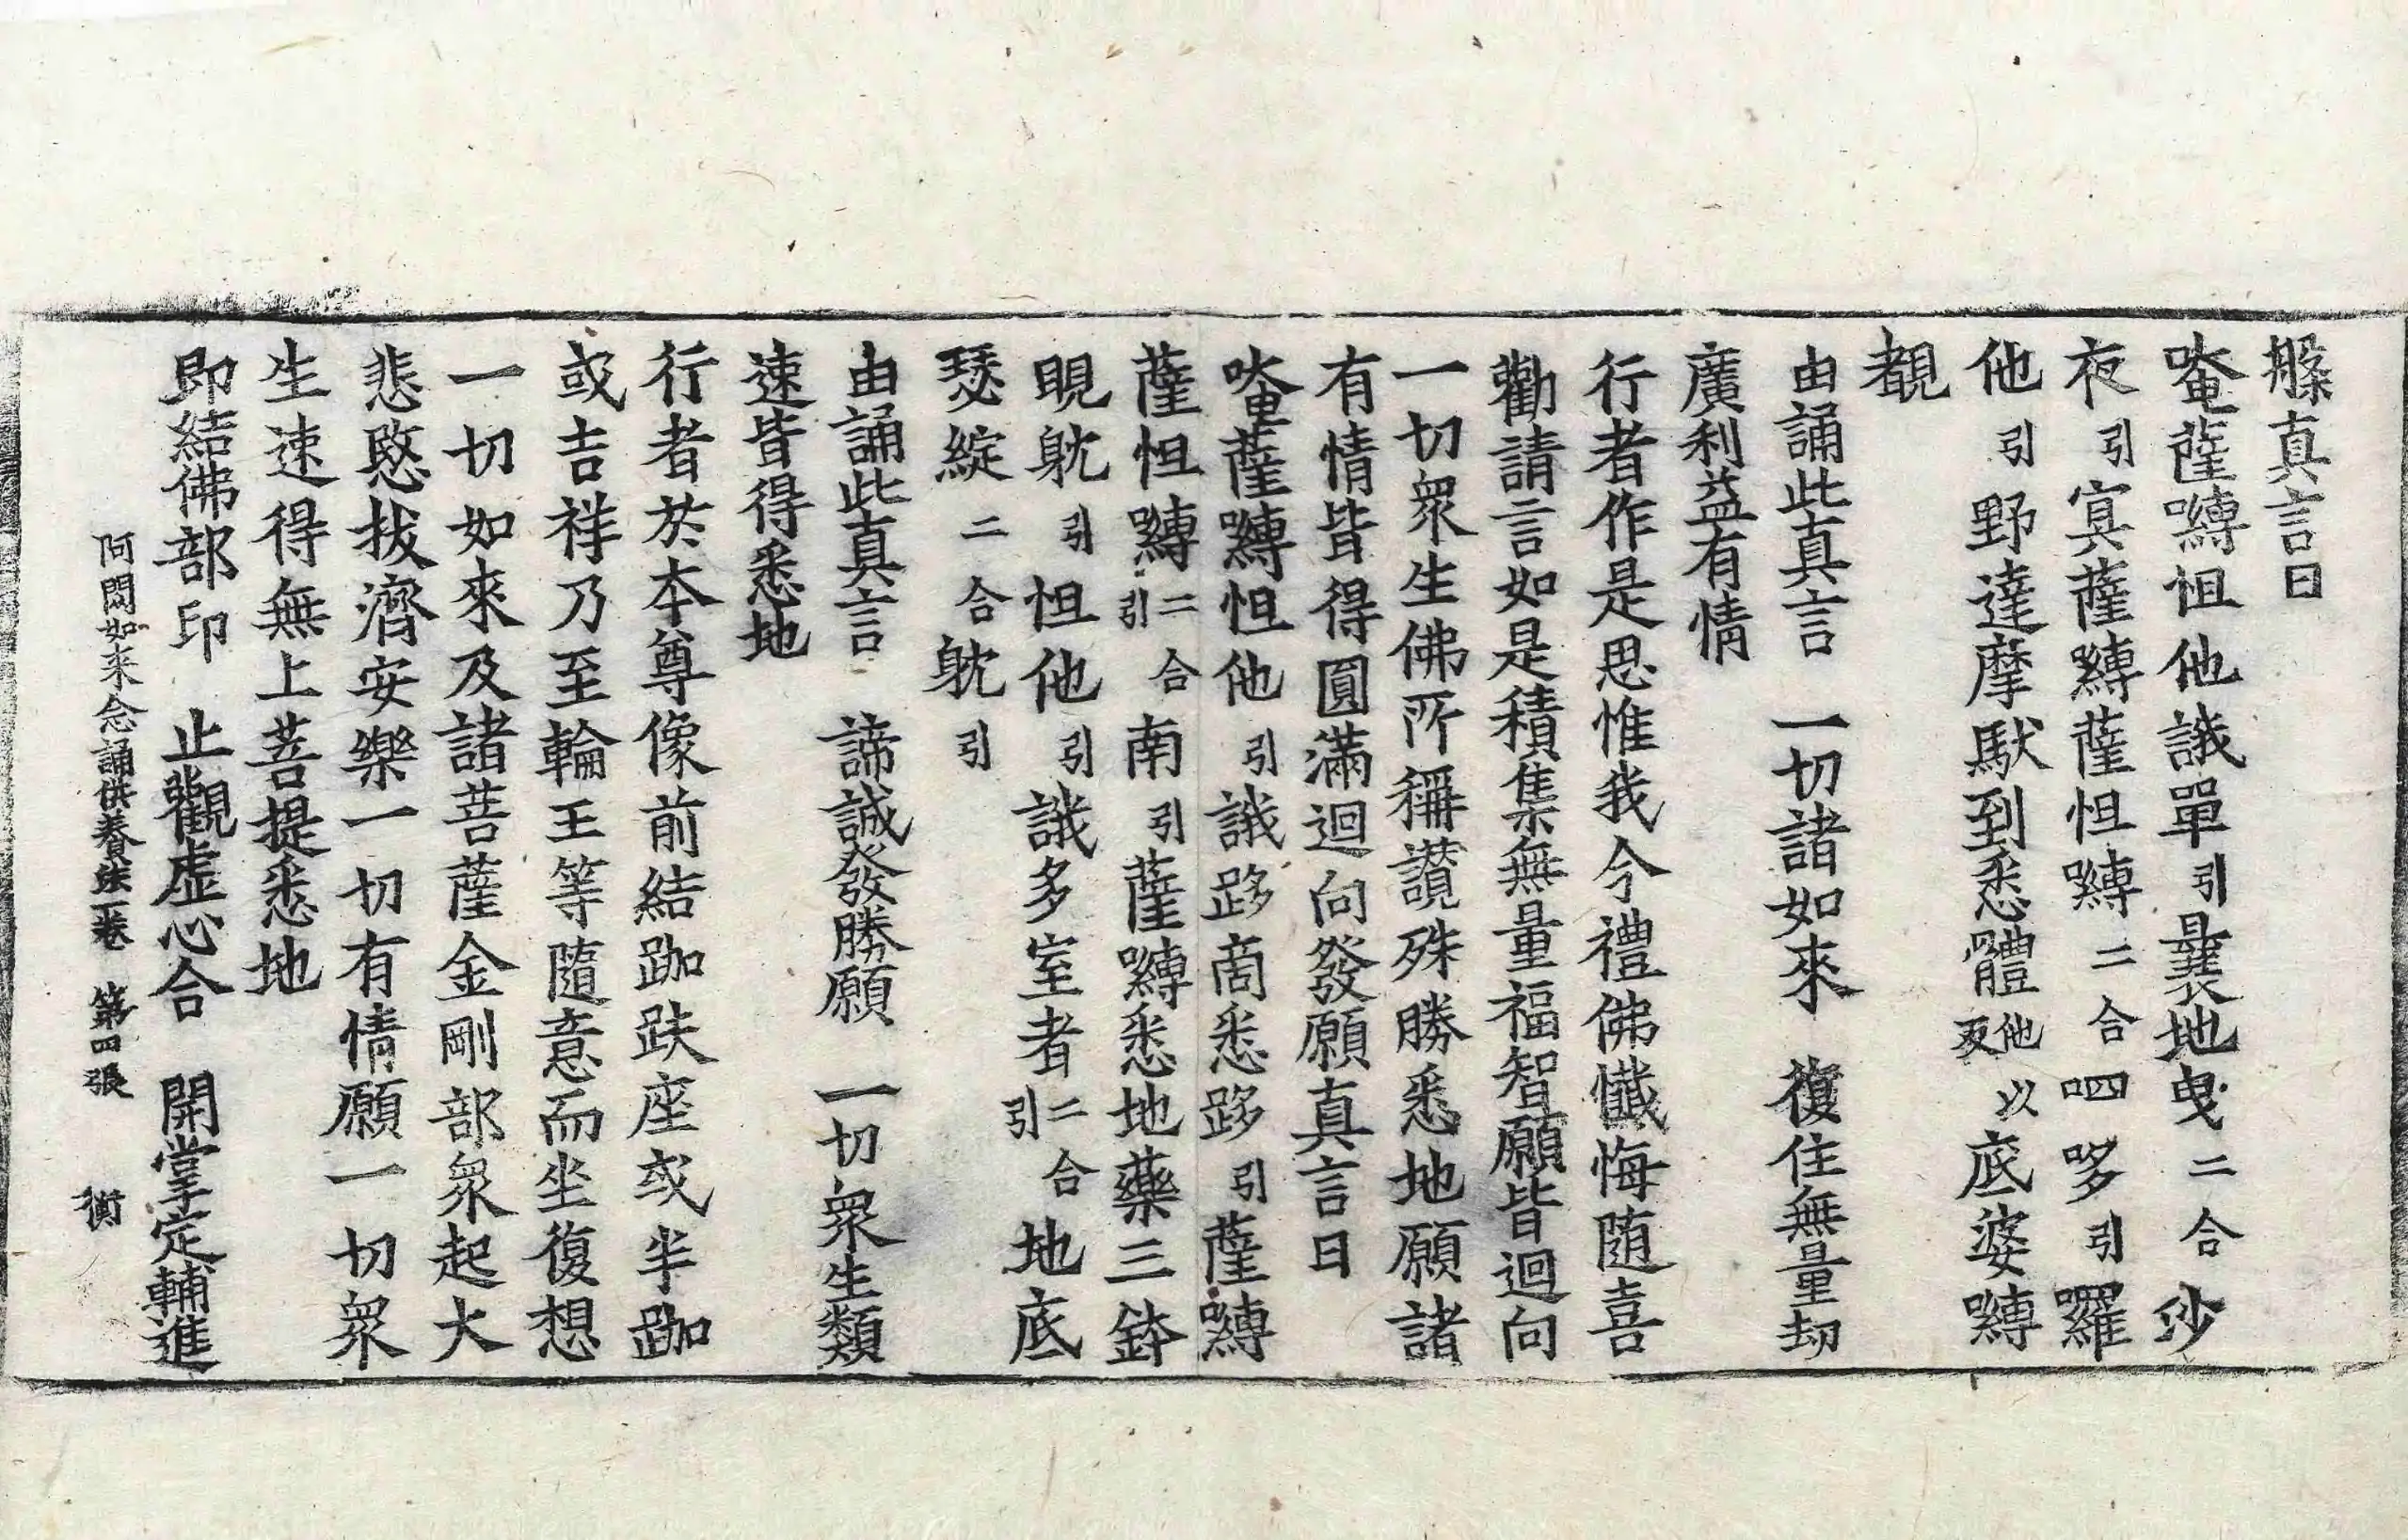 槃真言曰
唵薩嚩怛他誐單引曩地曳二合沙
夜引寘薩嚩薩怛嚩二合呬哆引囉
他引野達摩馱到悉體他以反底婆嚩
覩
由誦此真言　一切諸如來　復住無量劫
廣利益有情
行者作是思惟我今禮佛懺悔隨喜
勸請言如是積集無量福智願皆迴向
一切衆生佛所稱讚殊勝悉地願諸
有情皆得圓滿迴向發願真言曰
唵薩嚩怛他引誐跢商悉跢引薩嚩
薩怛嚩二合引南引薩嚩悉地藥三鉢
睍躭引怛他引誐多室者二合引地底
瑟綻二合躭引
由誦此真言　諦誠發勝願　一切衆生類
速皆得悉地
行者於本尊像前結跏趺座或半跏
或吉祥乃至輪王等隨意而坐復想
一切如來及諸菩薩金剛部衆起大
悲愍拔濟安樂一切有情願一切衆
生速得無上菩提悉地
即結佛部印　止觀虛心合　開掌定輔進
阿閦如来念誦供養法一卷　第四張　衡